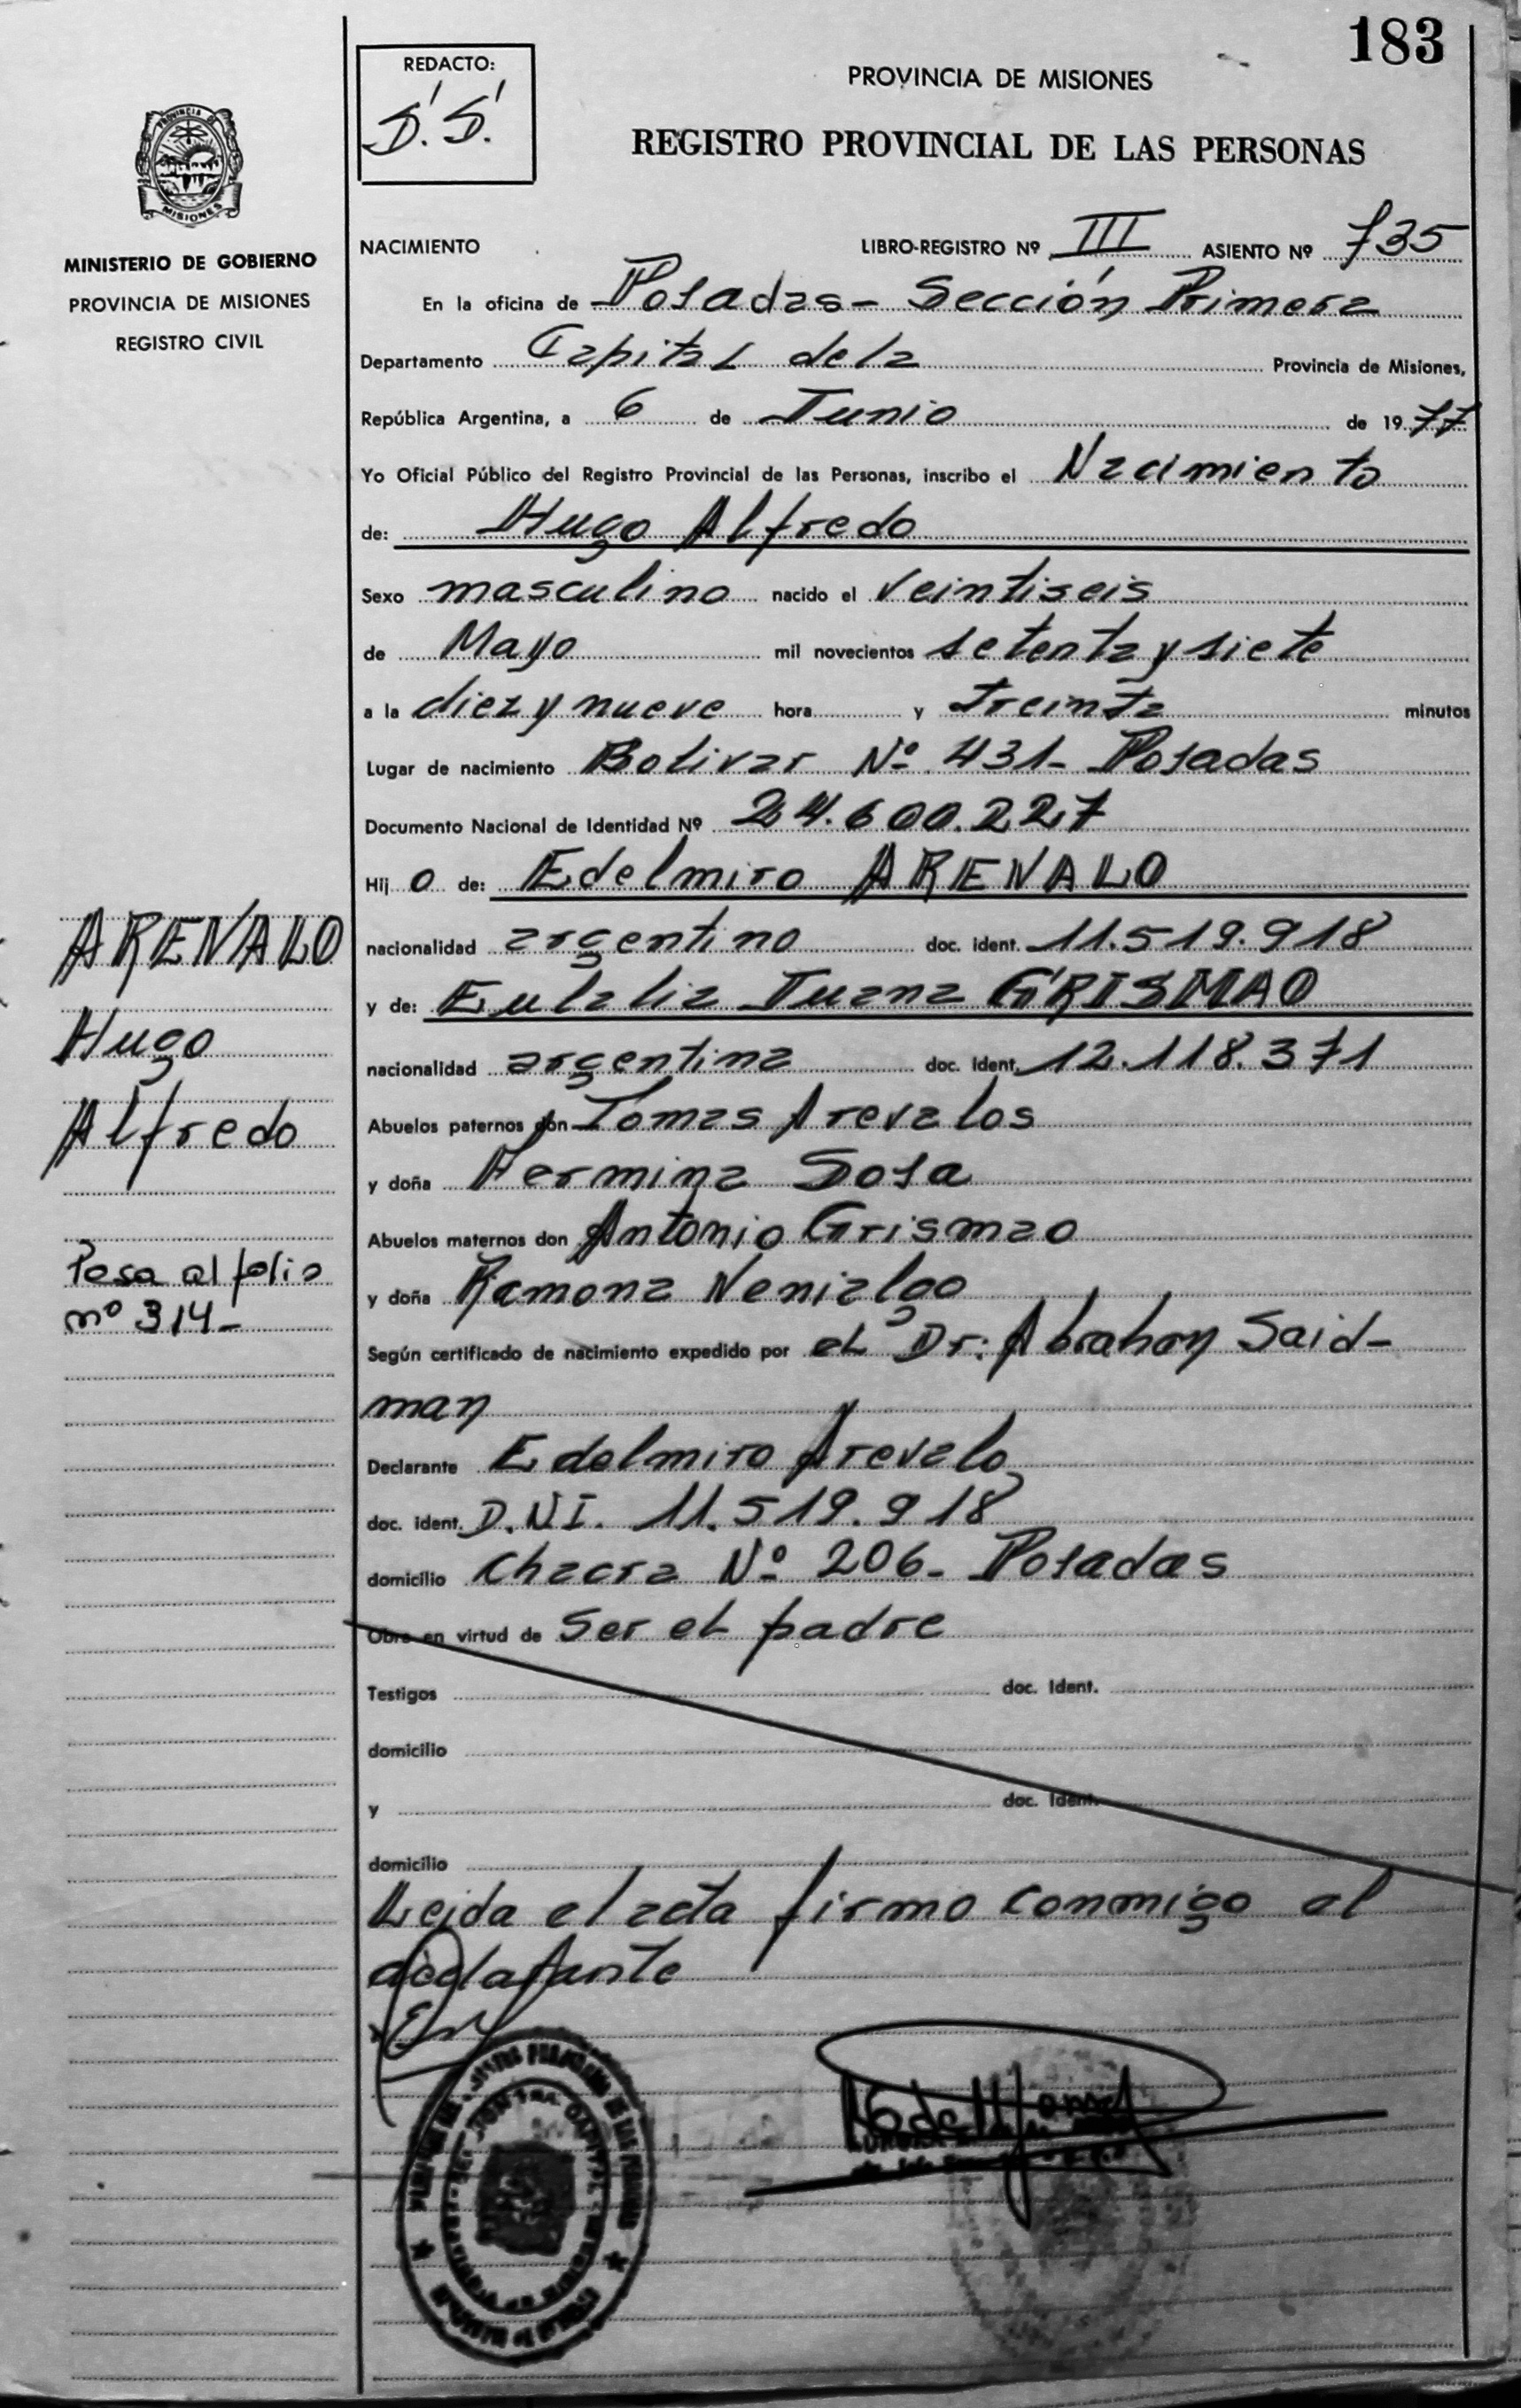 183
REDACTO:
S. S.
PROVINCIA DE MISIONES
REGISTRO PROVINCIAL DE LAS PERSONAS
PROVINCIA DE
MISIONES
MINISTERIO DE GOBIERNO
PROVINCIA DE MISIONES
REGISTRO CIVIL
NACIMIENTO LIBRO-REGISTRO Nº III ASIENTO Nº 735
En la oficina de Posadas- Sección Primera
Departamento Capital de la Provincia de Misiones,
República Argentina, a 6 de Junio de 1977
Yo Oficial Público del Registro Provincial de las Personas, inscribo el Nacimiento
de: Hugo Alfredo
Sexo masculino nacido el veintiseis
de Mayo mil novecientos setenta y siete
a la diez y nueve hora y treinta minutos
Lugar de nacimiento Bolivar Nº 431- Posadas
Documento Nacional de Identidad Nº 24.600.227
Hij o de: Edelmiro AREVALO
nacionalidad argentino doc. ident. 11.519.918
y de: Eulalia Juana GRISMAO
nacionalidad argentina doc. ident. 12.118.371
Abuelos paternos don Tomas Arevalos
y doña Hermina Sosa
Abuelos maternos don Antonio Grismao
y doña Ramona
Según certificado de nacimiento expedido por el Dr. Abrahan Said-
man
Declarante Edelmiro Arevalo
doc. ident. D.N.I. 11.519.918
domicilio Chacra Nº 206- Posadas
Obra en virtud de Ser el padre
Testigos doc. Ident.
domicilio
y doc. Ident.
domicilio
Leida el acta firmo conmigo el
declarante
AREVALO
Hugo
Alfredo
Pasa al folio
nº 314-